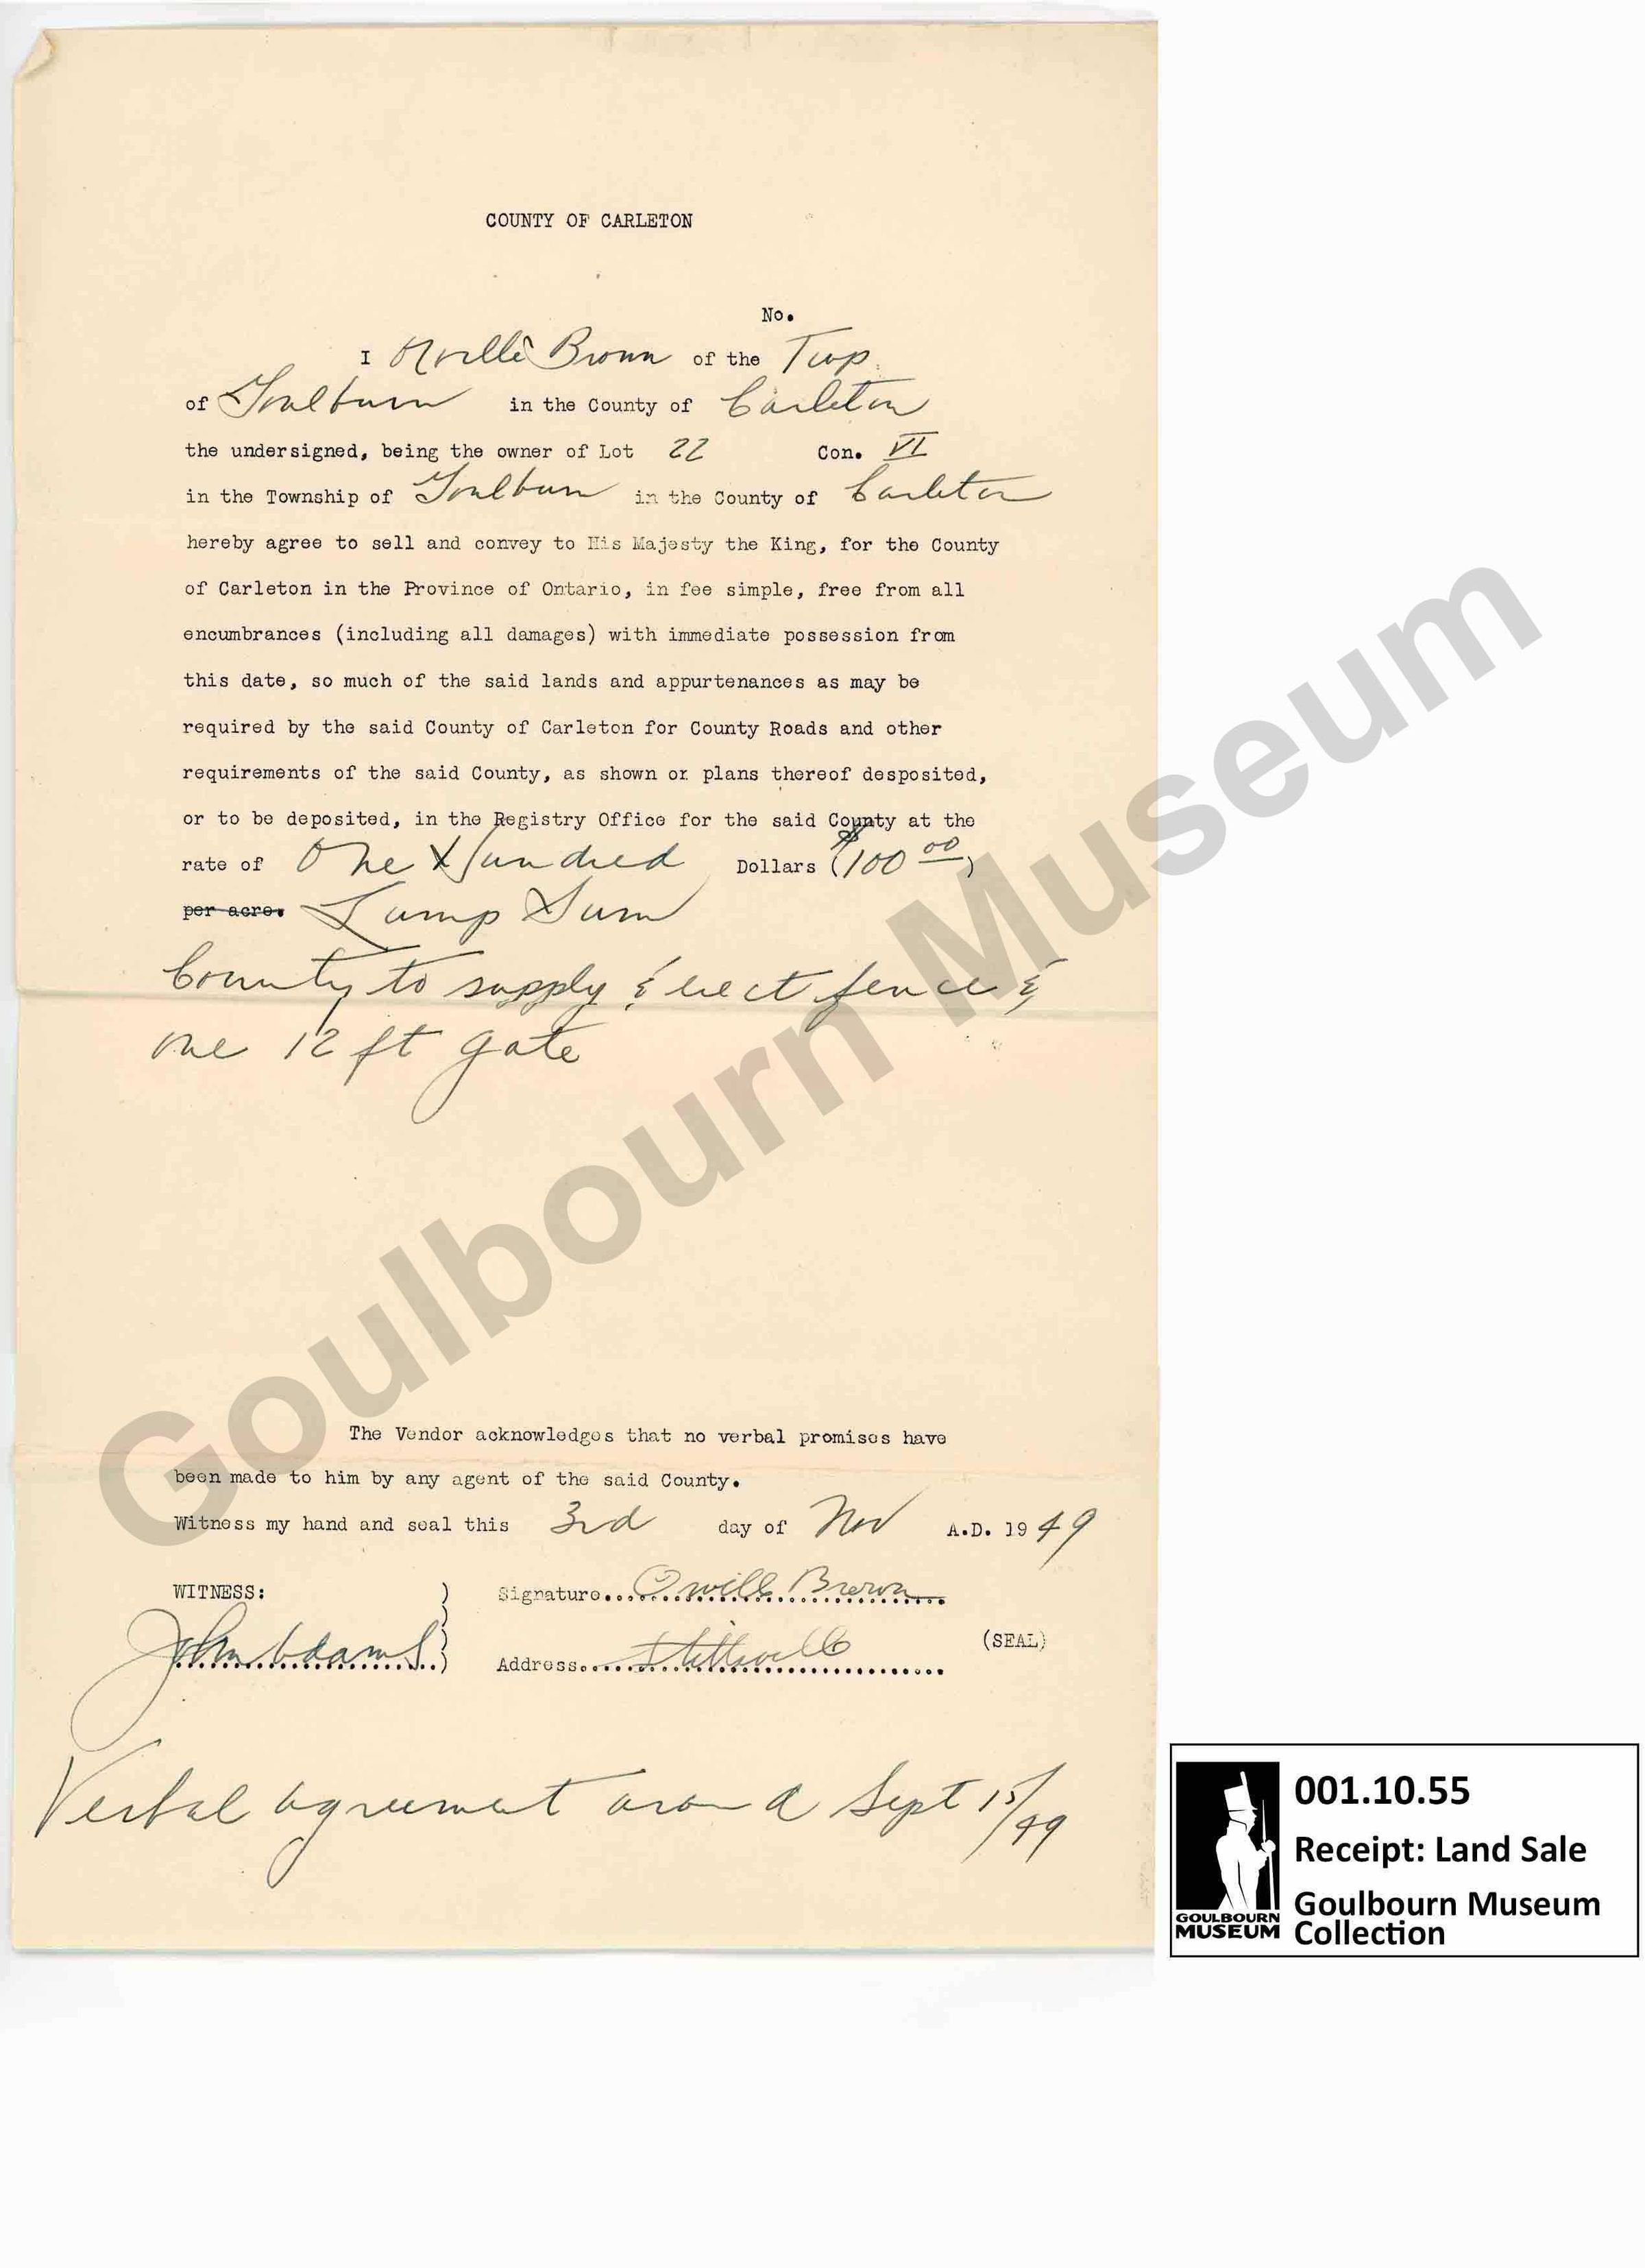 COUNTY OF CARLETON
No.
I Orville Brown of the Twp.
of Goulburn in the County of Carleton
the undersigned, being the owner of Lot 22 Con. VI
in the Township of Goulburn in the County of Carleton
hereby agree to sell and convey to His Majesty the King, for the County
of Carleton in the Province of Ontario, in fee simple, free from all
encumbrances (including all damages) with immediate possession from
this date, so much of the said lands and appurtenances as may be
required by the said County of Carleton for County Roads and other
requirements of the said County, as shown on plans thereof desposited,
or to be deposited, in the Registry Office for the said County at the
rate of One Hundred Dollars ($100 00)
per acre. Lump Sum
County to supply & erect fence &
one 12 ft gate
The Vendor acknowledges that no verbal promises have
been made to him by any agent of the said County.
Witness my hand and seal this 3rd day of Nov A.D. 1949
WITNESS: ) Signature Orville Brown
John Adams ) Address Stittsville (SEAL)
Verbal agreement around Sept 15/49
Goulbourn Museum
001.10.55
Receipt: Land Sale
Goulbourn Museum
Collection
GOULBOURN
MUSEUM